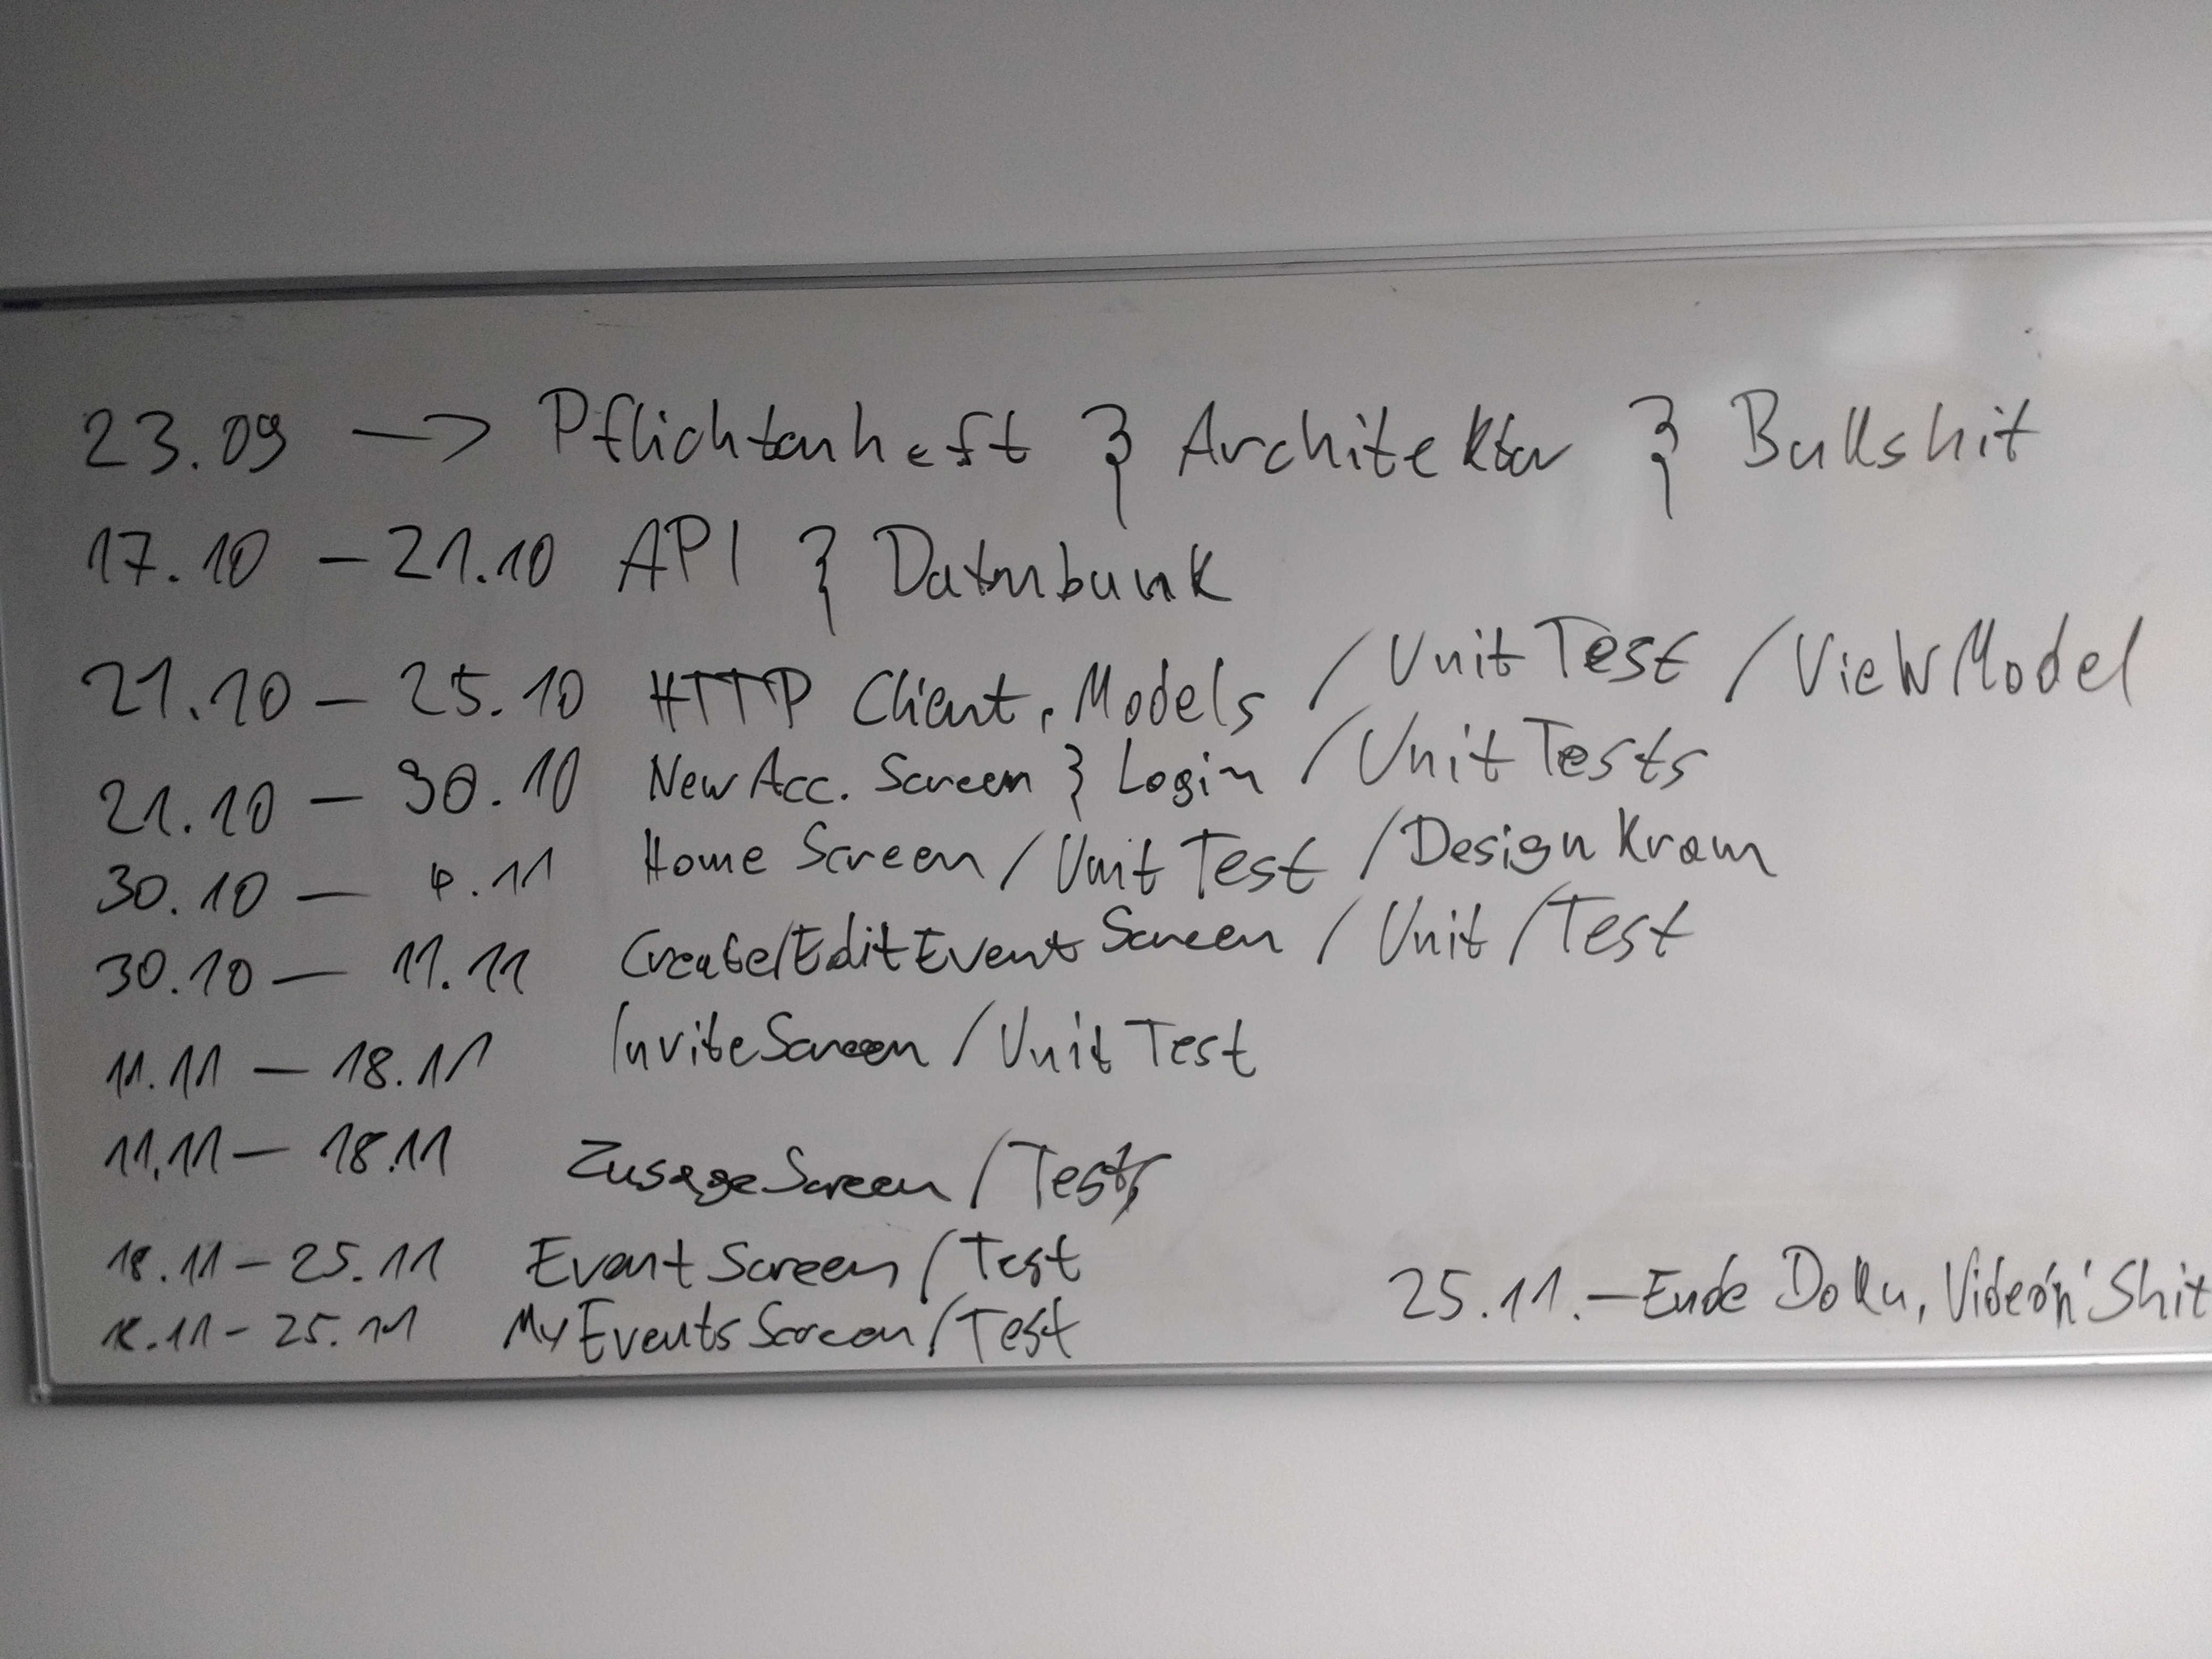 23.09 —> Pflichtenheft & Architektur & Bullshit
17.10 – 21.10 API & Datenbank
21.10 – 25.10 HTTP Client, Models / Unit Test / ViewModel
21.10 – 30.10 New Acc. Screen & Login / Unit Tests
30.10 – 4.11 Home Screen / Unit Test / Design Kram
30.10 – 11.11 Create/Edit Event Screen / Unit / Test
11.11 – 18.11 Invite Screen / Unit Test
11.11 – 18.11 Zusage Screen / Tests
18.11 – 25.11 Event Screen / Test
18.11 – 25.11 My Events Screen / Test
25.11. – Ende Doku, Video 'n' Shit